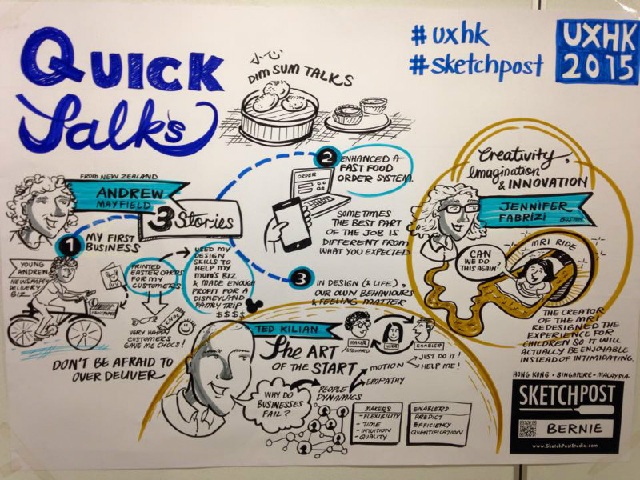 QUICK
Talks
小心
DIM SUM TALKS
#uxhk
#sketchpost
UXHK
2015
FROM NEW ZEALAND
ANDREW
MAYFIELD
3 Stories
1
MY FIRST
BUSINESS
YOUNG
ANDREW
NEWSPAPER
DELIVERY
BIZ
PRINTED
EASTER CARDS
FOR MY
CUSTOMERS
VERY HAPPY
CUSTOMERS
GAVE ME CHOCS!
USED MY
DESIGN
SKILLS TO
HELP MY
MUM'S BIZ
& MADE ENOUGH
PROFIT FOR A
DISNEYLAND
FAMILY TRIP
$$$$
DON'T BE AFRAID TO
OVER DELIVER
2
ENHANCED A
FAST FOOD
ORDER SYSTEM.
ORDER
SOMETIMES
THE BEST PART
OF THE JOB IS
DIFFERENT FROM
WHAT YOU EXPECTED
3
IN DESIGN (& LIFE),
OUR OWN BEHAVIOURS
& FEELING MATTER
Creativity,
Imagination
& INNOVATION
JENNIFER
FABRIZI
BOSTON
CAN WE
DO THIS
AGAIN?
MRI RIDE
THE CREATOR
OF THE MRI
REDESIGNED THE
EXPERIENCE FOR
CHILDREN SO IT WILL
ACTUALLY BE ENJOYABLE
INSTEAD OF INTIMIDATING.
TED KILIAN
The ART
OF THE START
WHY DO
BUSINESSES
FAIL?
PEOPLE
DYNAMICS
MOTION
EMPATHY
JUST DO IT!
HELP ME!
MAKERS
FLEXIBILITY
TIME
INTUITION
QUALITY
ENABLERS
PREDICT
EFFICIENCY
QUANTIFICATION
HONG KONG • SINGAPORE • MALAYSIA
SKETCHPOST
BERNIE
www.SketchPostStudio.com